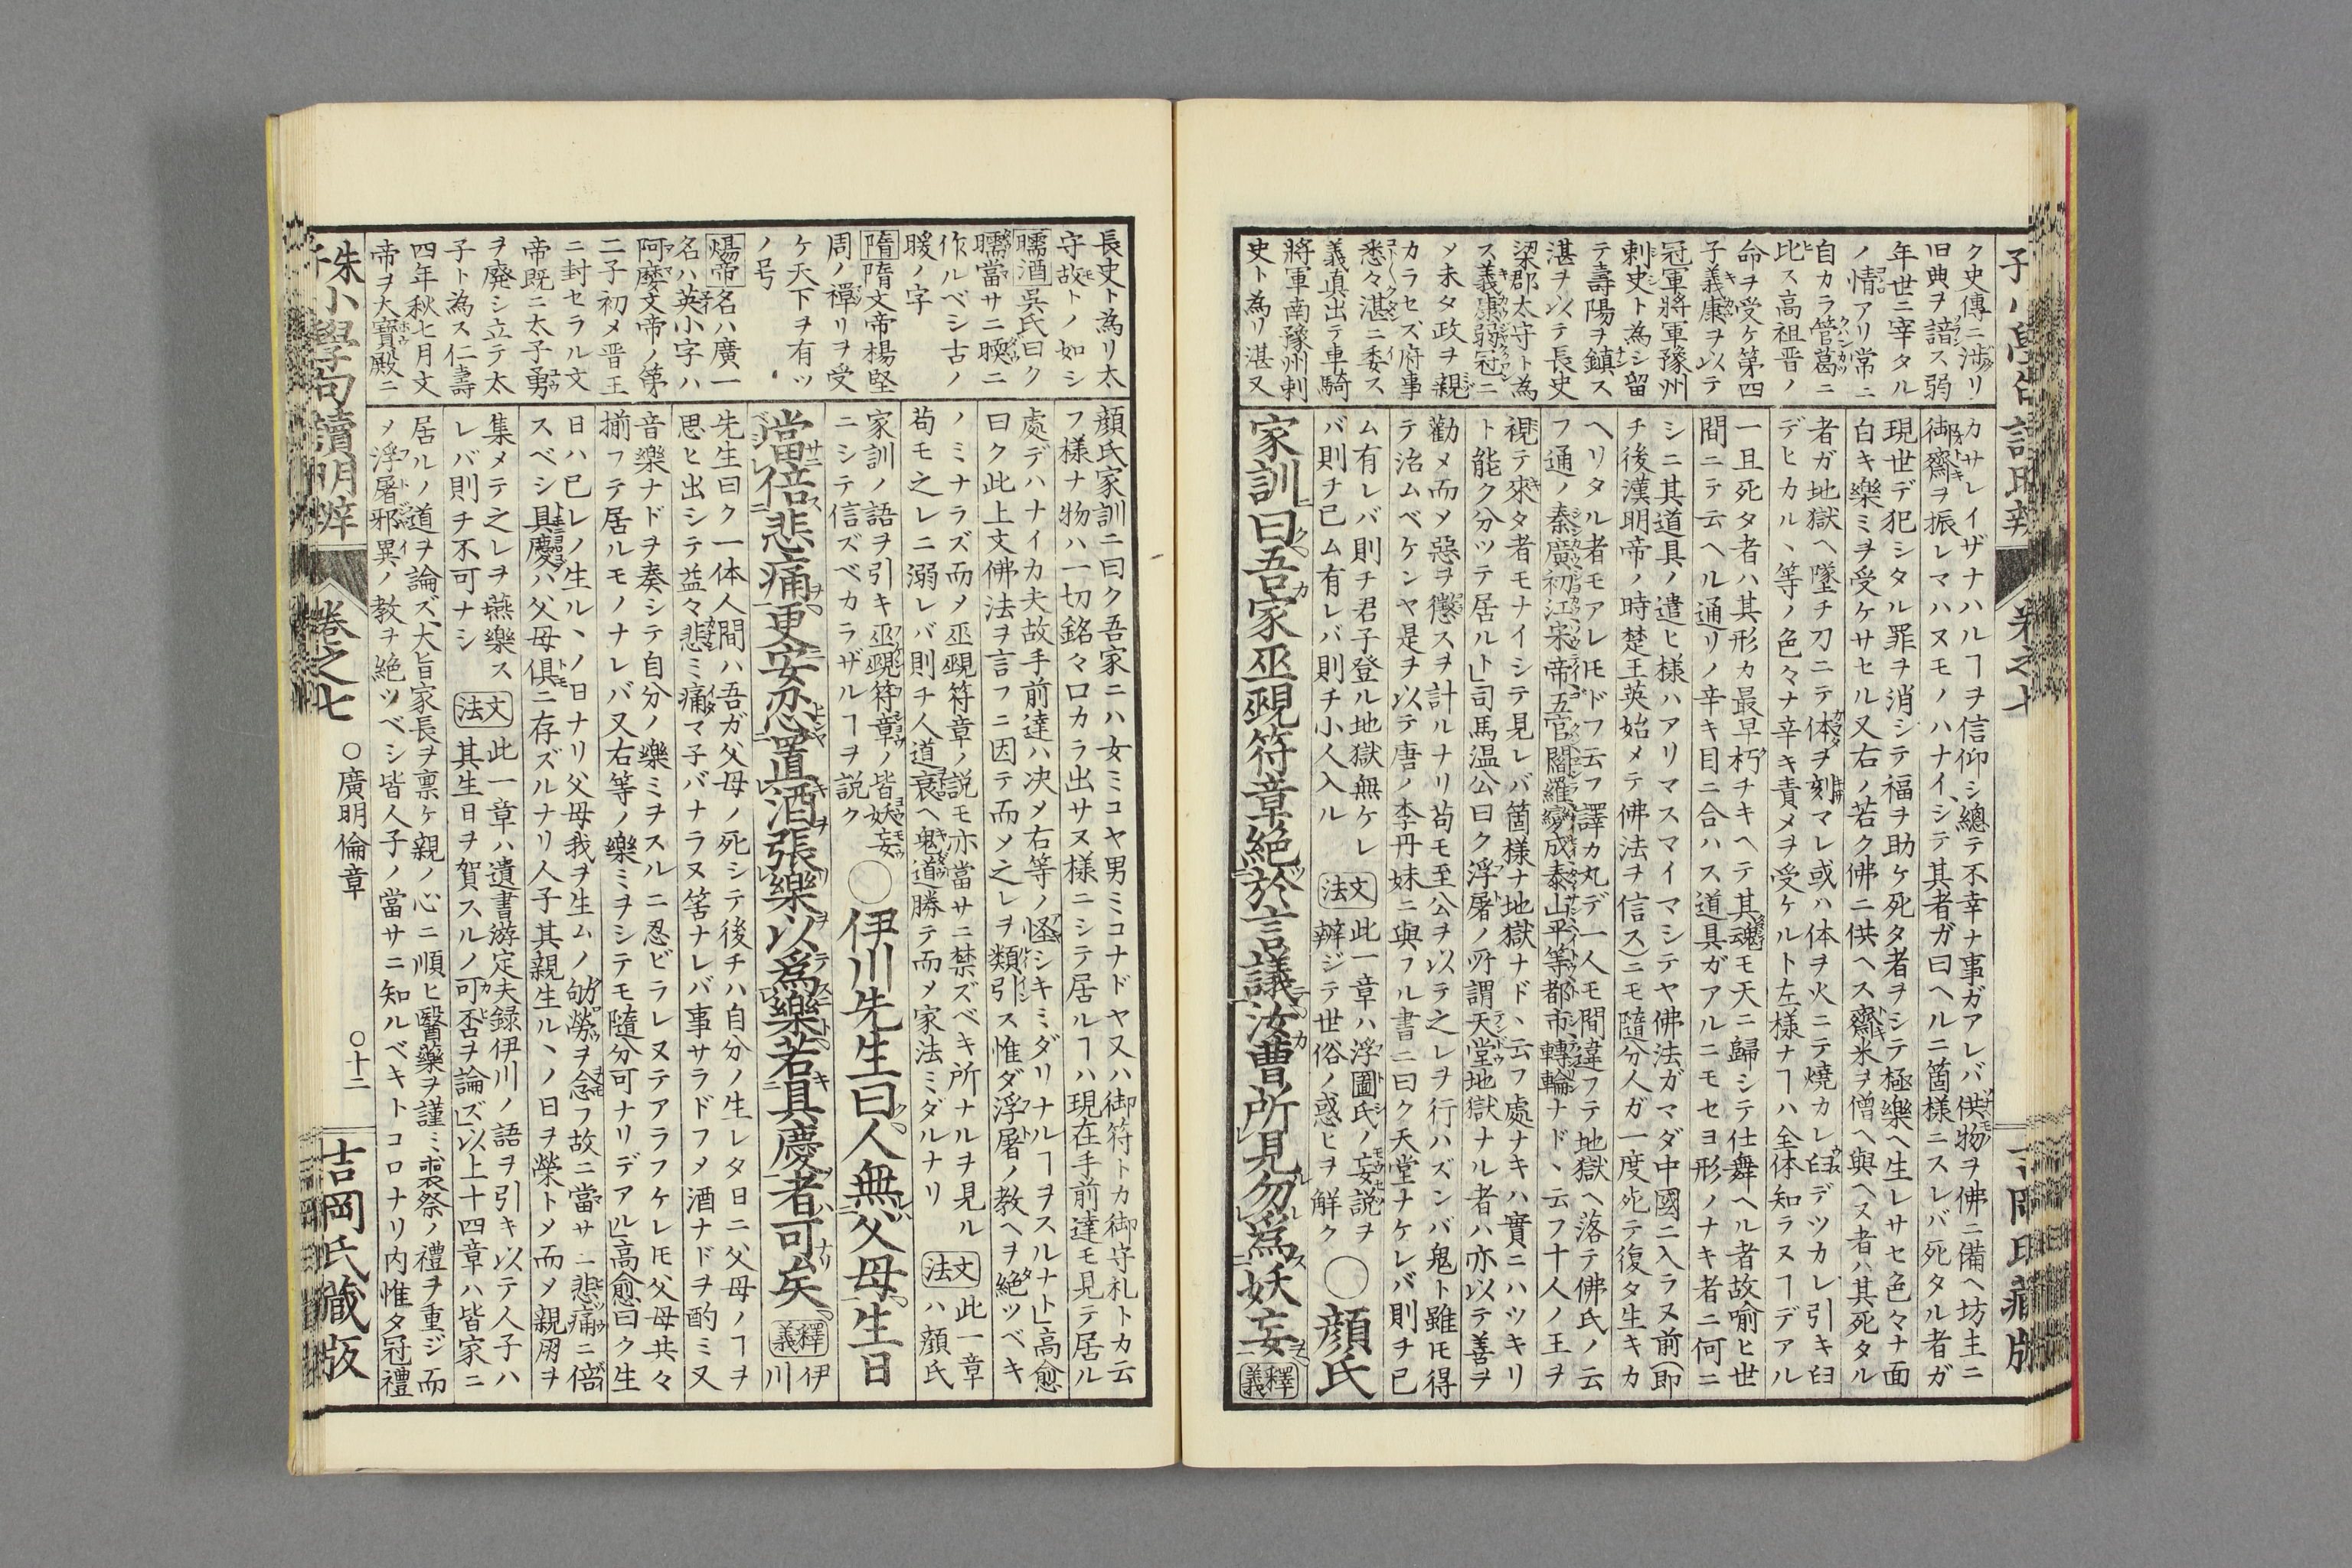 ク史傳ニ渉リ
旧典ヲ諳ス弱
年世三宰タル
ノ情アリ常ニ
自カラ管葛ニ
比ス高祖晋ノ
命ヲ受ケ第四
子義康ヲ以テ
冠軍將軍豫州
刺史ト為シ留
テ壽陽ヲ鎮ス
湛ヲ以テ長史
梁郡太守ト為
ス義康弱冠ニ
メ未タ政ヲ親
カラセズ府事
悉々湛ニ委ス
義真出テ車騎
將軍南豫州刺
史ト為リ湛又
カサレイザナハルヿヲ信仰シ總テ不幸ナ事ガアレバ供物ヲ佛ニ備ヘ坊主ニ
御齋ヲ振レマハヌモノハナイ、シテ其者ガ曰ヘルニ箇様ニスレバ死タル者ガ
現世デ犯シタル罪ヲ消シテ福ヲ助ケ死タ者ヲシテ極樂ヘ生レサセ色々ナ面
白キ樂ミヲ受ケサセル又右ノ若ク佛ニ供ヘス齋米ヲ僧ヘ與ヘヌ者ハ其死タル
者ガ地獄ヘ墜チ刀ニテ体ヲ刻マレ或ハ体ヲ火ニテ燒カレ臼デツカレ引キ臼
デヒカル、等ノ色々ナ辛キ責メヲ受ケルト左様ナヿハ全体知ラヌヿデアル
一旦死タ者ハ其形カ最早朽チキヘテ其魂モ天ニ歸シテ仕舞ヘル者故喻ヒ世
間ニテ云ヘル通リノ辛キ目ニ合ハス道具ガアルニモセヨ形ノナキ者ニ何ニ
シニ其道具ノ遣ヒ様ハアリマスマイマシテヤ佛法ガマダ中國ニ入ラヌ前(即
チ後漢明帝ノ時楚王英始メテ佛法ヲ信ス)ニモ隨分人ガ一度死テ復タ生キカ
ヘリタル者モアレ𪜈ドフ云フ譯カ丸デ一人モ間違フテ地獄ヘ落テ佛氏ノ云
フ通ノ秦廣初江宋帝五官閻羅變成泰山平等都市轉輪ナド、云フ十人ノ王ヲ
視テ來タ者モナイシテ見レバ箇様ナ地獄ナド、云フ處ナキハ實ニハツキリ
ト能ク分ツテ居ルト」司馬温公曰ク浮屠ノ所謂天堂地獄ナル者ハ亦以テ善ヲ
勸メ而メ惡ヲ懲スヲ計ルナリ苟モ至公ヲ以テ之レヲ行ハズンバ鬼ト雖𪜈得
テ治ムベケンヤ是ヲ以テ唐ノ李丹妹ニ與フル書ニ曰ク天堂ナケレバ則チ已
ム有レバ則チ君子登ル地獄無ケレ
バ則チ已ム有レバ則チ小人入ル
文法
此一章ハ浮圖氏ノ妄説ヲ
辨ジテ世俗ノ惑ヒヲ解ク
〇顔氏
家訓曰吾家巫覡符章絶於言議汝曹所見勿爲妖妄
釋義
長史ト為リ太
守故トノ如シ
臑酒呉氏曰ク
臑當サニ暖ニ
作ルベシ古ノ
暖ノ字
隋隋文帝楊堅
周ノ禪リヲ受
ケ天下ヲ有ツ
ノ号
煬帝名ハ廣一
名ハ英小字ハ
阿𡡉文帝ノ第
二子初メ晋王
ニ封セラル文
帝既ニ太子勇
ヲ廢シ立テ太
子ト為ス仁壽
四年秋七月文
帝ヲ大寶殿ニ
顔氏家訓ニ曰ク吾家ニハ女ミコヤ男ミコナドヤ又ハ御符トカ御守札トカ云
フ様ナ物ハ一切銘々口カラ出サヌ様ニシテ居ルヿハ現在手前達モ見テ居ル
處デハナイカ夫故手前達ハ决メ右等ノ怪シキミダリナルヿヲスルナト」高愈
曰ク此上文佛法ヲ言フニ因テ而メ之レヲ類引ス惟ダ浮屠ノ教ヘヲ絶ツベキ
ノミナラズ而メ巫覡符章ノ説モ亦當サニ禁ズベキ所ナルヲ見ル
苟モ之レニ溺レバ則チ人道衰ヘ鬼道勝テ而メ家法ミダルナリ
文法
此一章
ハ顔氏
家訓ノ語ヲ引キ巫覡符章ノ皆妖妄
ニシテ信ズベカラザルヿヲ説ク
〇伊川先生曰人無父母生日
當倍悲痛更安忍置酒張樂以爲樂若具慶者可矣
釋義
伊川
先生曰ク一体人間ハ吾ガ父母ノ死シテ後チハ自分ノ生レタ日ニ父母ノヿヲ
思ヒ出シテ益々悲ミ痛マ子バナラヌ筈ナレバ事サラドフメ酒ナドヲ酌ミ又
音樂ナドヲ奏シテ自分ノ樂ミヲスルニ忍ビラレヌテアラフケレ𪜈父母共々
揃フテ居ルモノナレバ又右等ノ樂ミヲシテモ隨分可ナリデアル」高愈曰ク生
日ハ已レノ生ル、ノ日ナリ父母我ヲ生ムノ劬勞ヲ念フ故ニ當サニ悲痛ニ倍
スベシ具慶ハ父母俱ニ存ズルナリ人子其親生ル、ノ日ヲ榮トメ而メ親朋ヲ
集メテ之レヲ燕樂ス
レバ則チ不可ナシ
文法
此一章ハ遺書游定夫録伊川ノ語ヲ引キ以テ人子ハ
其生日ヲ賀スルノ可否ヲ論ズ」以上十四章ハ皆家ニ
居ルノ道ヲ論ズ、大旨家長ヲ禀ケ親ノ心ニ順ヒ醫藥ヲ謹ミ喪祭ノ禮ヲ重ジ而
メ浮屠邪異ノ教ヲ絶ツベシ皆人子ノ當サニ知ルベキトコロナリ内惟タ冠禮
朱子小學句讀明辨
卷之七
〇廣明倫章
〇十二
吉岡氏藏版